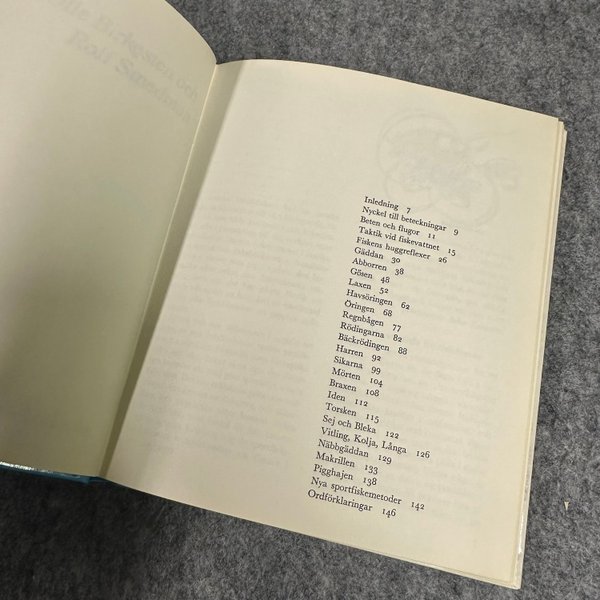 Inledning 7
Nyckel till beteckningar 9
Beten och flugor 11
Taktik vid fiskevattnet 15
Fiskens huggreflexer 26
Gäddan 30
Abborren 38
Gösen 48
Laxen 52
Havsöringen 62
Öringen 68
Regnbågen 77
Rödingarna 82
Bäckrödingen 88
Harren 92
Sikarna 99
Mörten 104
Braxen 108
Iden 112
Torsken 115
Sej och Bleka 122
Vitling, Kolja, Långa 126
Näbbgäddan 129
Makrillen 133
Pigghajen 138
Nya sportfiskemetoder 142
Ordförklaringar 146